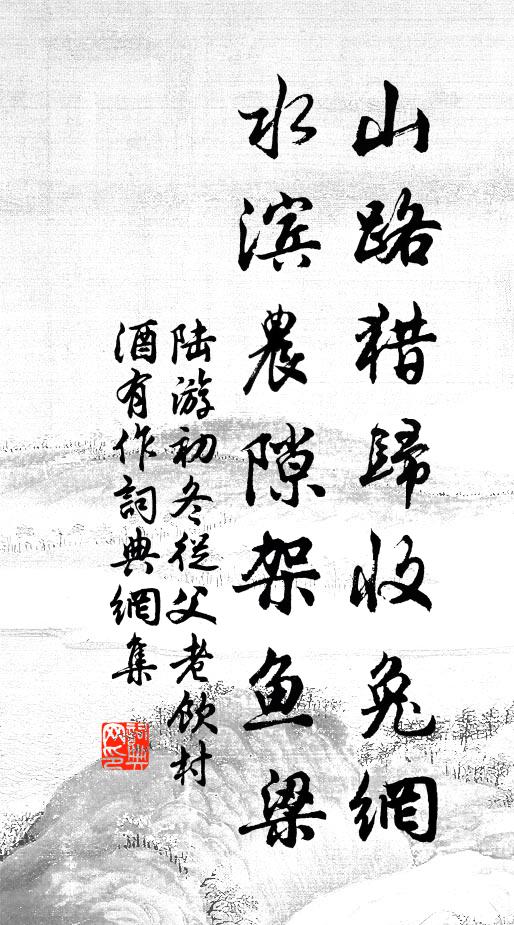 山路猎歸收兔網
水滨農隙架鱼梁
陆游初冬從父老飲村
酒有作詞典網集